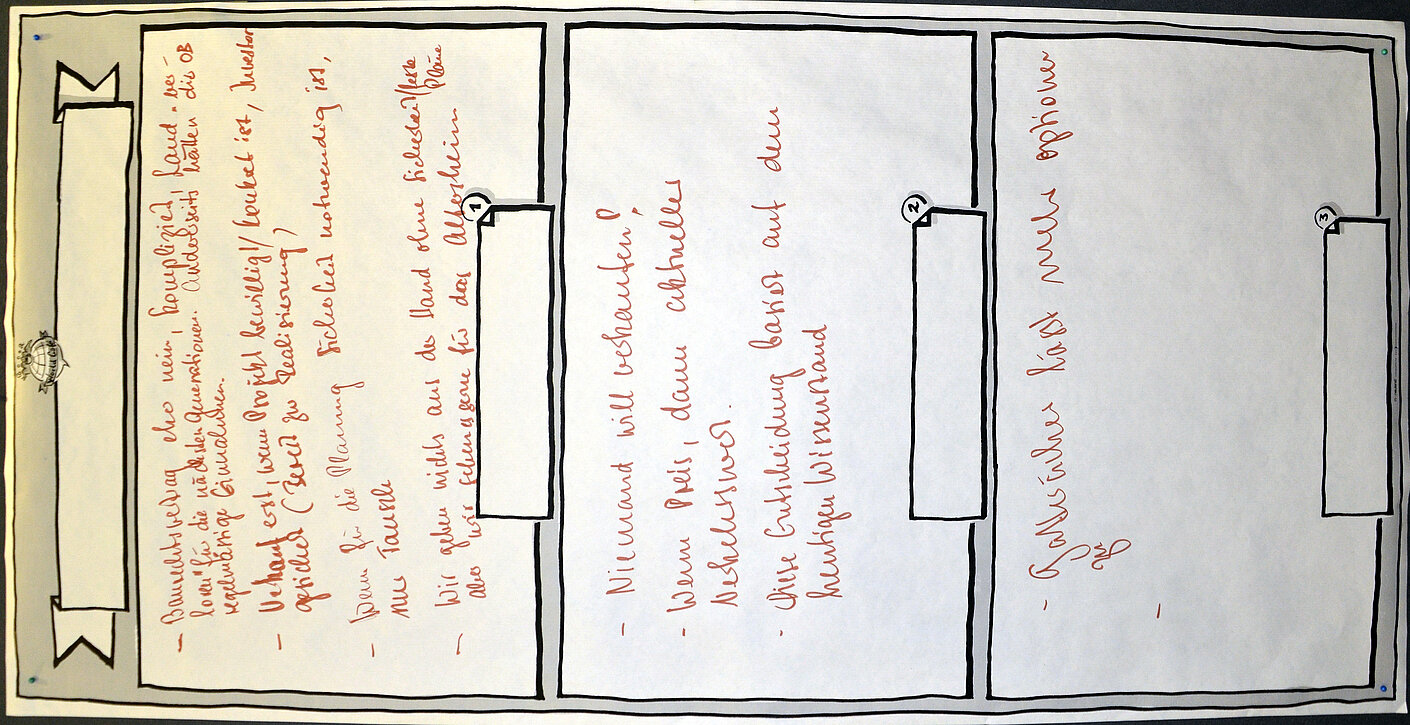 - Baurechtsvertrag eher nein, kompliziert, Land "ver-
loren" für die nächsten Generationen. Anderseits hätten die OB
regelmässige Einnahmen.
- Verkauf erst, wenn Projekt bewilligt/konkret ist, Investor
gesichert (Bereit zur Realisierung)
- Wenn für die Planung Sicherheit notwendig ist,
nur Tausch
- Wir geben nichts aus der Hand ohne Sicherheit/feste Pläne
aber wir schauen gerne für das Altersheim
1
- Niemand will verkaufen!
- Wenn Preis, dann aktueller
Verkehrswert.
- Diese Entscheidung basiert auf dem
heutigen Wissensstand
2
- Gallusäcker lässt mehr Optionen
zu
-
3